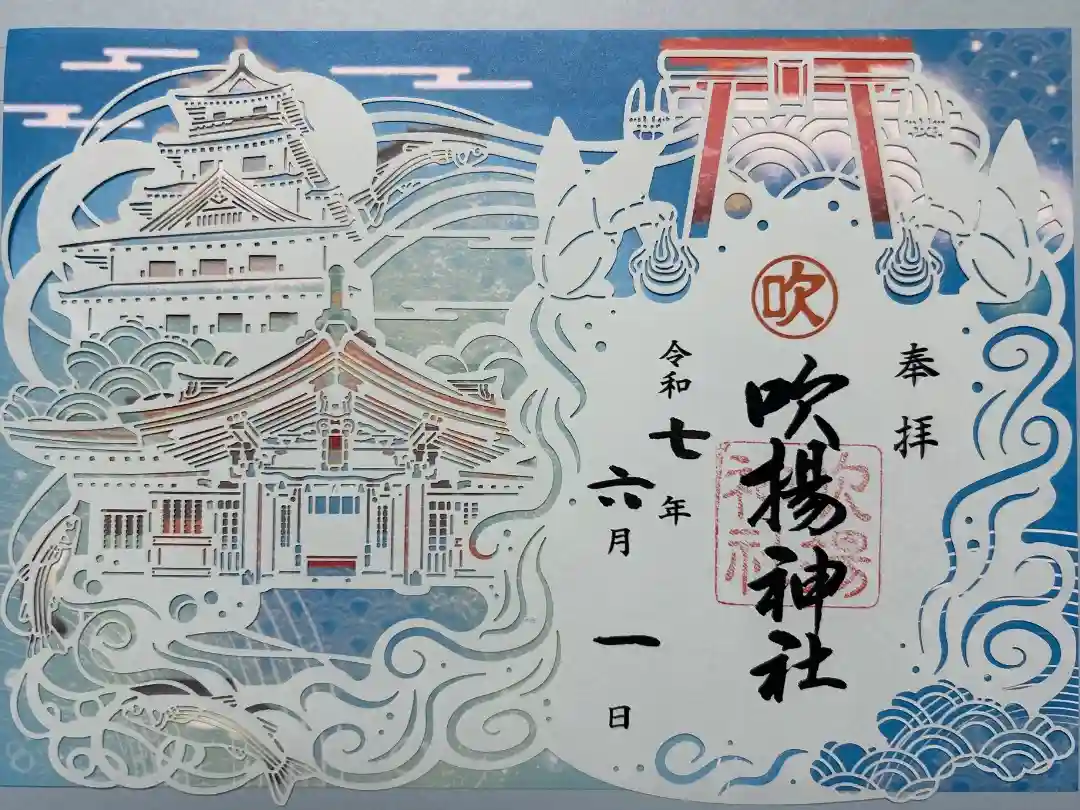 奉拝
吹
吹揚神社
吹揚神社
令和七年
六月一日